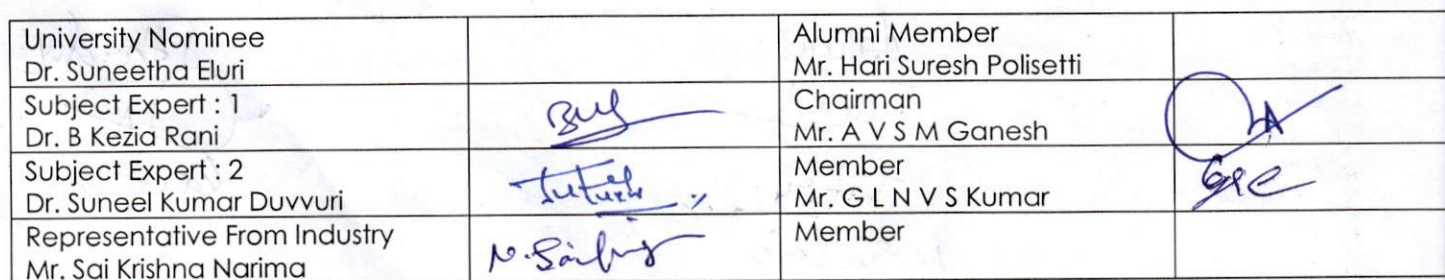 University Nominee
Dr. Suneetha Eluri
Alumni Member
Mr. Hari Suresh Polisetti
Subject Expert : 1
Dr. B Kezia Rani
Chairman
Mr. A V S M Ganesh
Subject Expert : 2
Dr. Suneel Kumar Duvvuri
Member
Mr. G L N V S Kumar
Representative From Industry
Mr. Sai Krishna Narima
Member